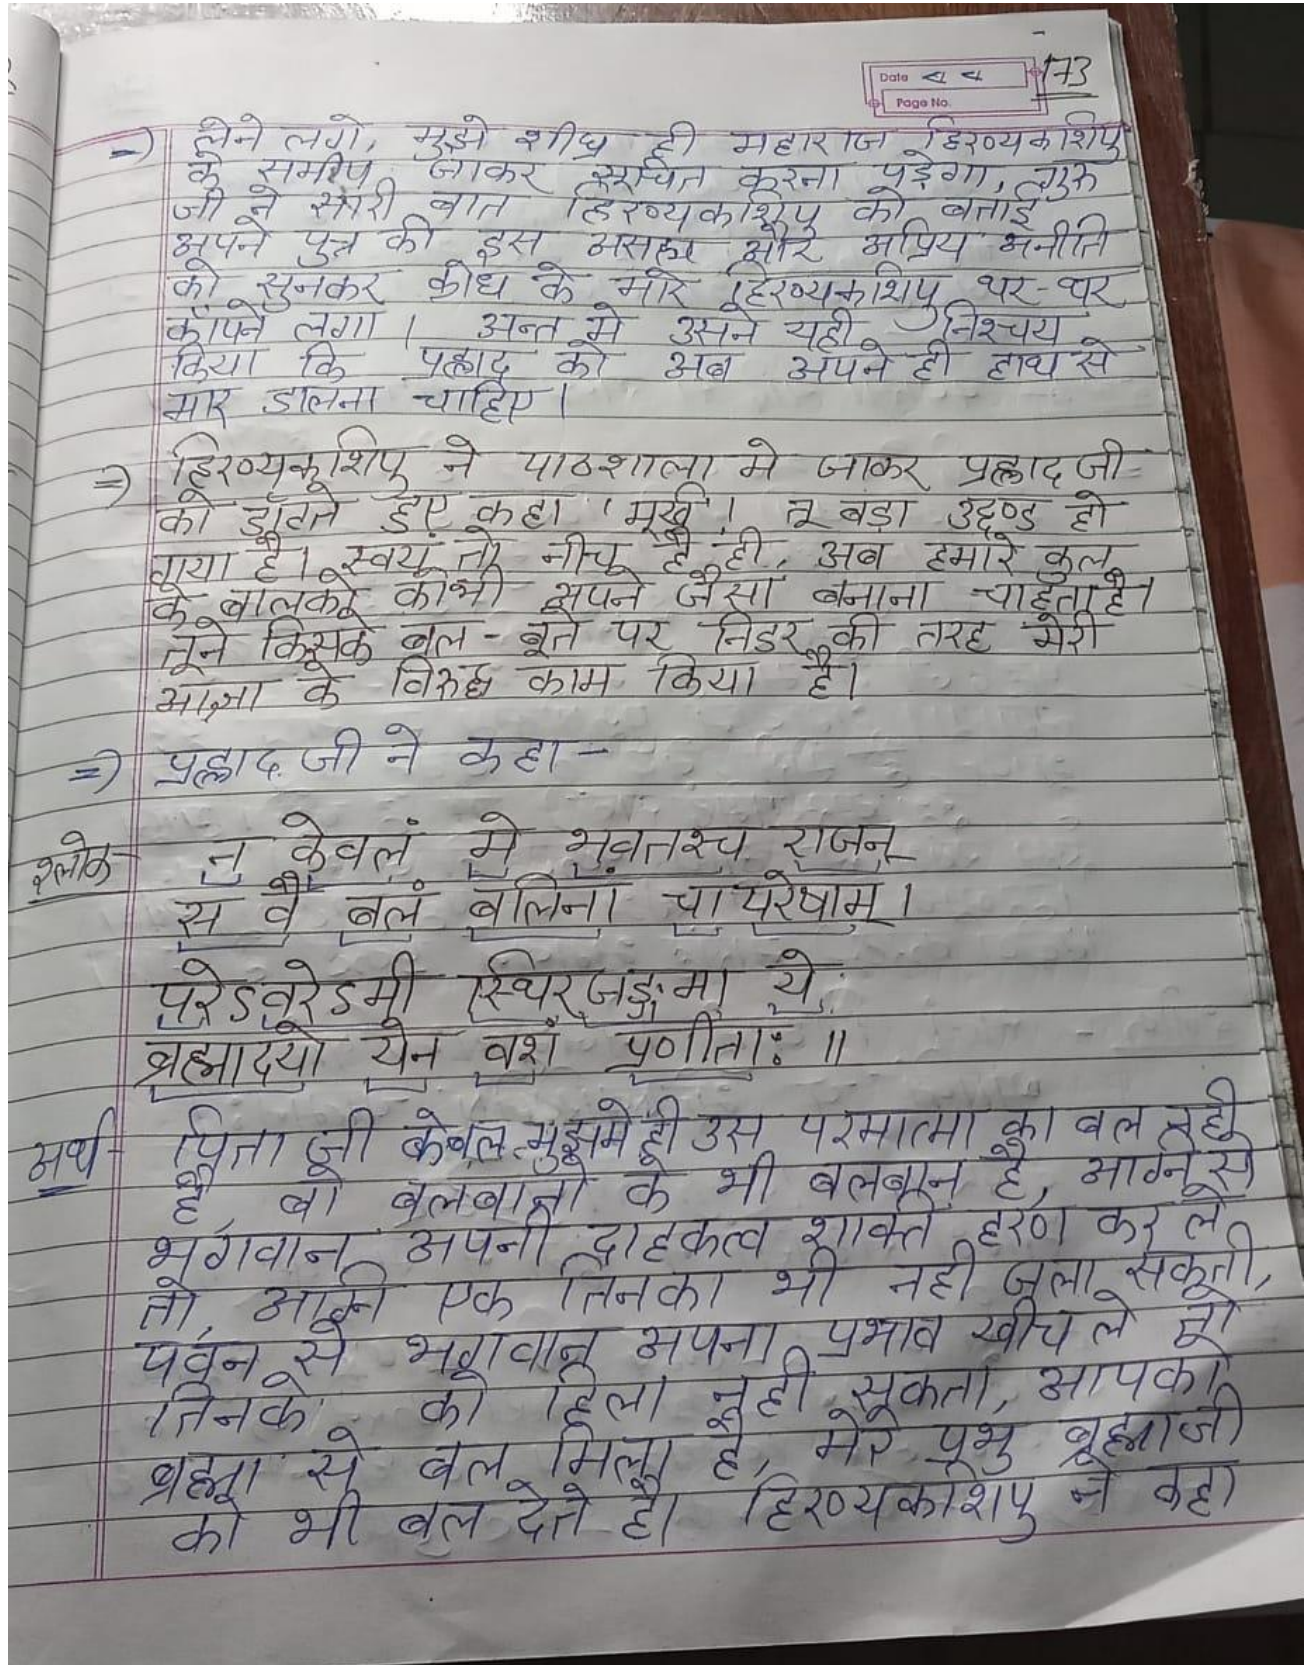 Date
173
Page No.
→ लेने लगे, मुझे शीघ्र ही महाराज हिरण्यकशिपु
के समीप जाकर सूचित करना पड़ेगा, गुरु
जी ने सारी बात हिरण्यकशिपु को बताई
अपने पुत्र की इस असह्य और अप्रिय अनीति
को सुनकर क्रोध के मारे हिरण्यकशिपु थर-थर
काँपने लगा। अन्त मे उसने यही निश्चय
किया कि प्रह्लाद को अब अपने ही हाथ से
मार डालना चाहिए।
⇒ हिरण्यकशिपु ने पाठशाला मे जाकर प्रह्लाद जी
को डाँटते हुए कहा 'मूर्ख! तू बड़ा उद्दण्ड हो
गया है। स्वयं तो नीच है ही, अब हमारे कुल
के बालको को भी अपने जैसा बनाना चाहता है।
तूने किसके बल-बूते पर निडर की तरह मेरी
आज्ञा के विरुद्ध काम किया है।
⇒ प्रह्लाद जी ने कहा -
श्लोक- न केवलं मे भवतश्च राजन्
स वै बलं बलिनां चापरेषाम्।
परेऽवरेऽमी स्थिरजङ्गमा ये
ब्रह्मादयो येन वशं प्रणीताः॥
अर्थ- पिता जी केवल मुझमे ही उस परमात्मा का बल नही
है, वो बलबानो के भी बलबान है, अग्नि से
भगवान अपनी दाहकत्व शक्ति हरण कर ले
तो, अग्नि एक तिनका भी नही जला सकती,
पवन से भगवान अपना प्रभाव खीच ले तो
तिनके को हिला नही सकता, आपको
ब्रह्मा से बल मिला है, मेरे प्रभु ब्रह्माजी
को भी बल देते है। हिरण्यकशिपु ने कहा